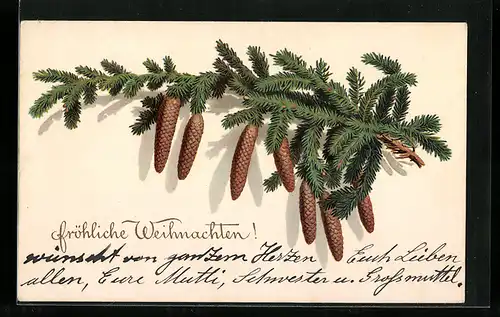 Fröhliche Weihnachten!
wünscht von ganzem Herzen Euch Lieben
allen, Eure Mutti, Schwester u. Großmuttel.